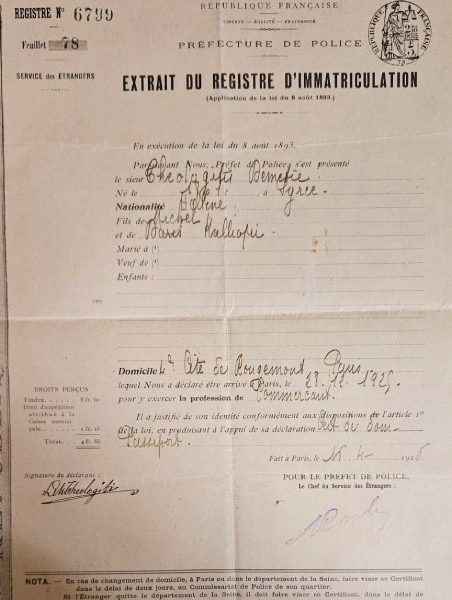 REGISTRE N° 6799
RÉPUBLIQUE FRANÇAISE
LIBERTÉ – ÉGALITÉ – FRATERNITÉ
Feuillet 78
PRÉFECTURE DE POLICE
SERVICE DES ÉTRANGERS
EXTRAIT DU REGISTRE D'IMMATRICULATION
(Application de la loi du 8 août 1893.)
En exécution de la loi du 8 août 1893,
Par devant Nous, Préfet de Police s'est présenté
le sieur Theologitis
Né le à Syrce
Nationalité
Fils de Michel
et de Kalliopi
Marié à (1)
Veuf de (1)
Enfants :
Domicile 4 Cité de Rougemont Paris
lequel Nous a déclaré être arrivé à Paris, le 28.12.1925
pour y exercer la profession de Commerçant.
Il a justifié de son identité conformément aux dispositions de l'article 1er
de la loi, en produisant à l'appui de sa déclaration Cert de dom
Passeport
Fait à Paris, le 4 1926
DROITS PERÇUS
Timbre
Droit d'expédition
attribué à la
Caisse municipale
TOTAL
Signature du déclarant :
POUR LE PRÉFET DE POLICE,
Le Chef du Service des Étrangers :
NOTA. — En cas de changement de domicile, à Paris ou dans le département de la Seine, faire viser ce Certificat
dans le délai de deux jours, au Commissariat de Police de son quartier.
Si l'Étranger quitte le département de la Seine, il doit faire viser ce Certificat, dans le délai de